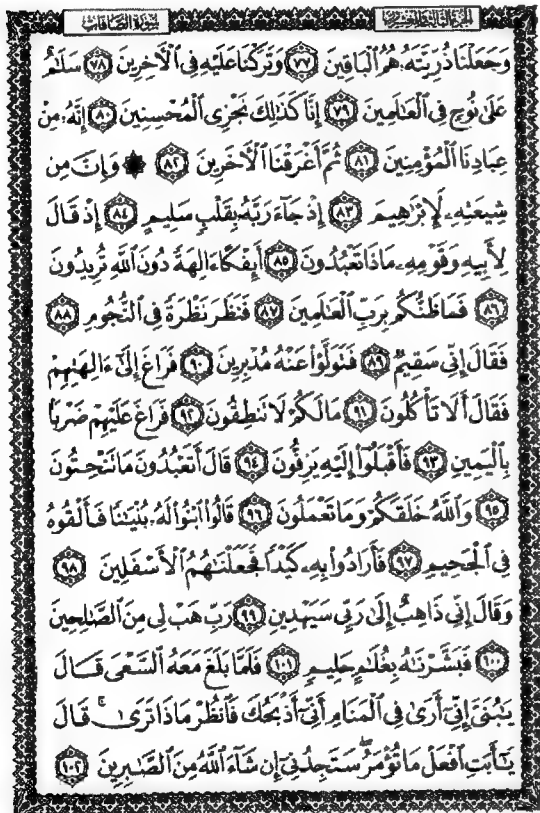 الجزء الثالث والعشرون
سورة الصافات
وَجَعَلْنَا ذُرِّيَّتَهُۥ هُمُ ٱلْبَاقِينَ ٧٧ وَتَرَكْنَا عَلَيْهِ فِى ٱلْـَٔاخِرِينَ ٧٨ سَلَـٰمٌ
عَلَىٰ نُوحٍ فِى ٱلْعَـٰلَمِينَ ٧٩ إِنَّا كَذَٰلِكَ نَجْزِى ٱلْمُحْسِنِينَ ٨٠ إِنَّهُۥ مِنْ
عِبَادِنَا ٱلْمُؤْمِنِينَ ٨١ ثُمَّ أَغْرَقْنَا ٱلْـَٔاخَرِينَ ٨٢ ۞ وَإِنَّ مِن
شِيعَتِهِۦ لَإِبْرَٰهِيمَ ٨٣ إِذْ جَآءَ رَبَّهُۥ بِقَلْبٍ سَلِيمٍ ٨٤ إِذْ قَالَ
لِأَبِيهِ وَقَوْمِهِۦ مَاذَا تَعْبُدُونَ ٨٥ أَئِفْكًا ءَالِهَةً دُونَ ٱللَّهِ تُرِيدُونَ
٨٦ فَمَا ظَنُّكُم بِرَبِّ ٱلْعَـٰلَمِينَ ٨٧ فَنَظَرَ نَظْرَةً فِى ٱلنُّجُومِ ٨٨
فَقَالَ إِنِّى سَقِيمٌ ٨٩ فَتَوَلَّوْا۟ عَنْهُ مُدْبِرِينَ ٩٠ فَرَاغَ إِلَىٰٓ ءَالِهَتِهِمْ
فَقَالَ أَلَا تَأْكُلُونَ ٩١ مَا لَكُمْ لَا تَنطِقُونَ ٩٢ فَرَاغَ عَلَيْهِمْ ضَرْبًۢا
بِٱلْيَمِينِ ٩٣ فَأَقْبَلُوٓا۟ إِلَيْهِ يَزِفُّونَ ٩٤ قَالَ أَتَعْبُدُونَ مَا تَنْحِتُونَ
٩٥ وَٱللَّهُ خَلَقَكُمْ وَمَا تَعْمَلُونَ ٩٦ قَالُوا۟ ٱبْنُوا۟ لَهُۥ بُنْيَـٰنًا فَأَلْقُوهُ
فِى ٱلْجَحِيمِ ٩٧ فَأَرَادُوا۟ بِهِۦ كَيْدًا فَجَعَلْنَـٰهُمُ ٱلْأَسْفَلِينَ ٩٨
وَقَالَ إِنِّى ذَاهِبٌ إِلَىٰ رَبِّى سَيَهْدِينِ ٩٩ رَبِّ هَبْ لِى مِنَ ٱلصَّـٰلِحِينَ
١٠٠ فَبَشَّرْنَـٰهُ بِغُلَـٰمٍ حَلِيمٍ ١٠١ فَلَمَّا بَلَغَ مَعَهُ ٱلسَّعْىَ قَالَ
يَـٰبُنَىَّ إِنِّىٓ أَرَىٰ فِى ٱلْمَنَامِ أَنِّىٓ أَذْبَحُكَ فَٱنظُرْ مَاذَا تَرَىٰ ۚ قَالَ
يَـٰٓأَبَتِ ٱفْعَلْ مَا تُؤْمَرُ ۖ سَتَجِدُنِىٓ إِن شَآءَ ٱللَّهُ مِنَ ٱلصَّـٰبِرِينَ ١٠٢